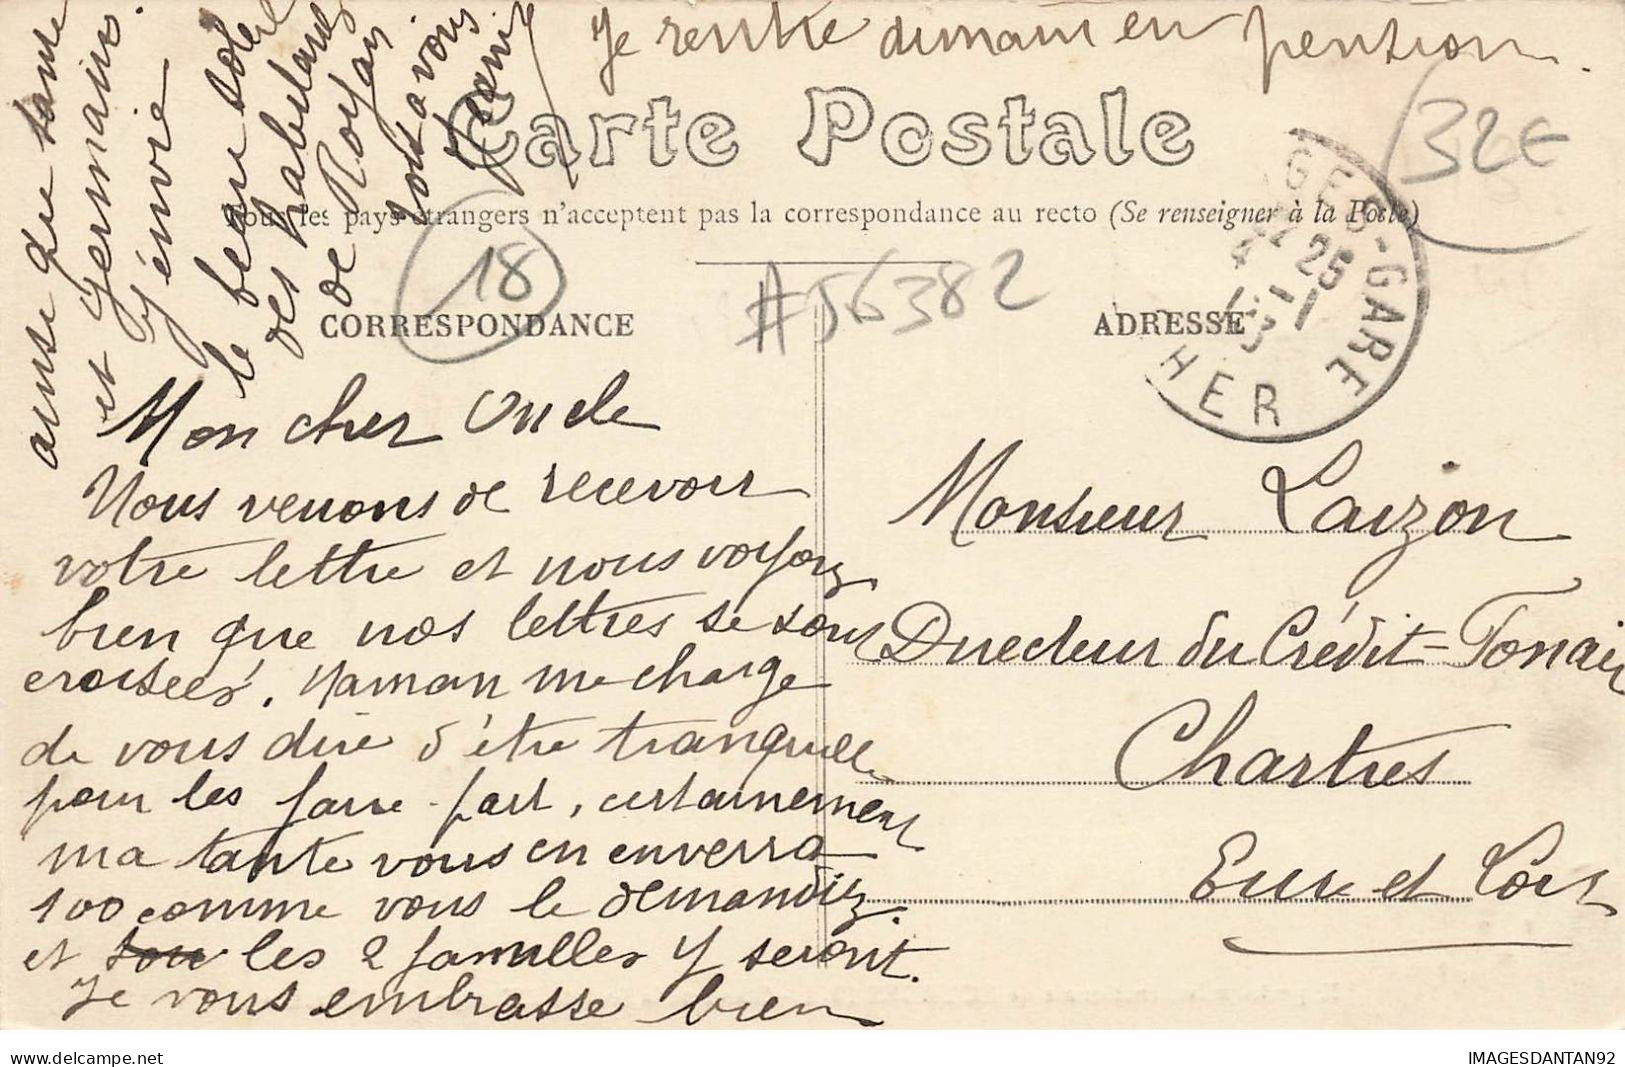 Je rentre dimain en pension.
Carte Postale
Tous les pays étrangers n'acceptent pas la correspondance au recto (Se renseigner à la Poste)
32€
18
#56382
CORRESPONDANCE
ADRESSE
GES-GARE
HER
4 - 1
Mon cher Oncle
Nous venons de recevoir
votre lettre et nous voyons
bien que nos lettres se sont
croisées. Maman me charge
de vous dire d'être tranquille
pour les faire-part, certainement
ma tante vous en enverra
100 comme vous le demandiez.
et les 2 familles y seront.
Je vous embrasse bien
ainsi que tante
et Germaine.
J'envoie
le beau soleil
des habitants
de Royan
tout à vous
Monsieur Laizon
Directeur du Crédit-Foncier
Chartres
Eure et Loir
www.delcampe.net
IMAGESDANTAN92